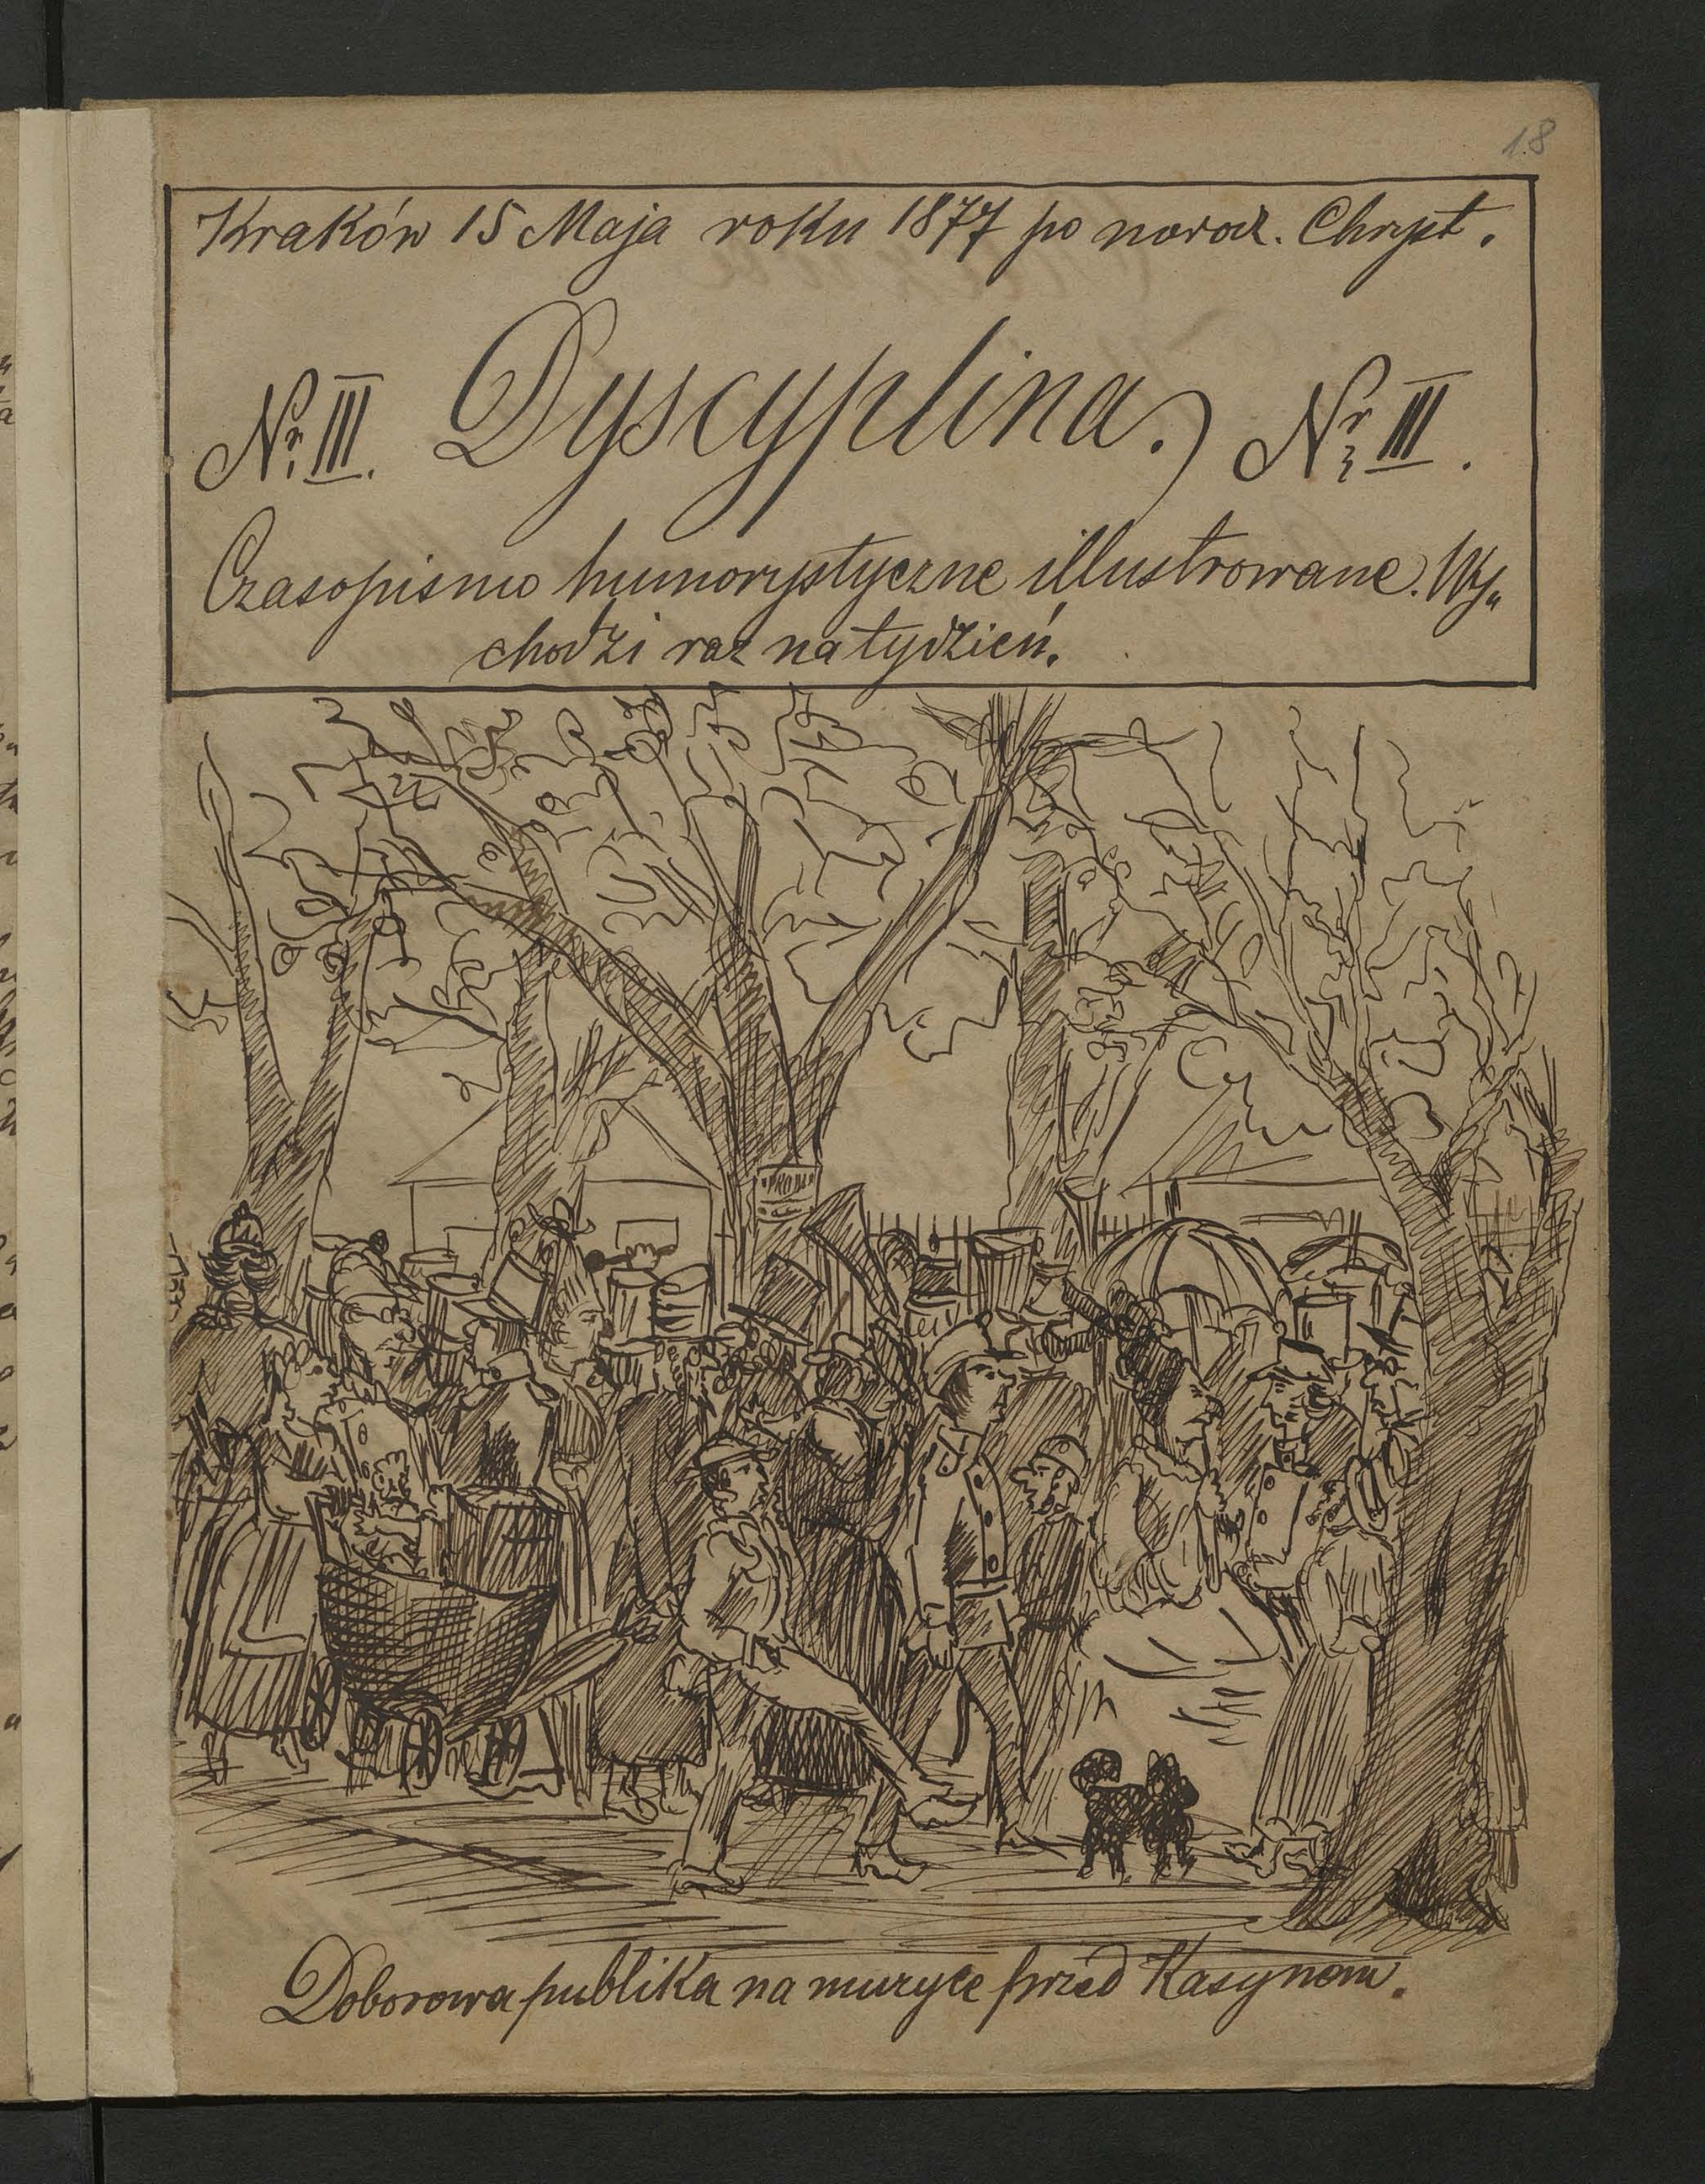 18
Kraków 15 Maja roku 1877 po narodz. Chryst.
Nr. III. Dyscyplina. Nr. III.
Czasopismo humorystyczne illustrowane. Wy„
chodzi raz na tydzień.
Doborowa publika na muzyce przed Kasynem.